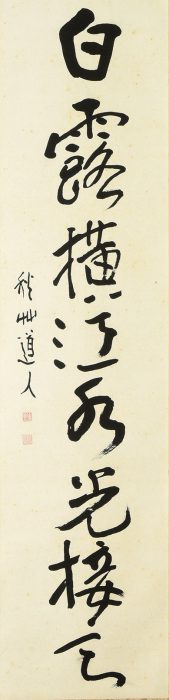 白露横江水光接天
秋艸道人